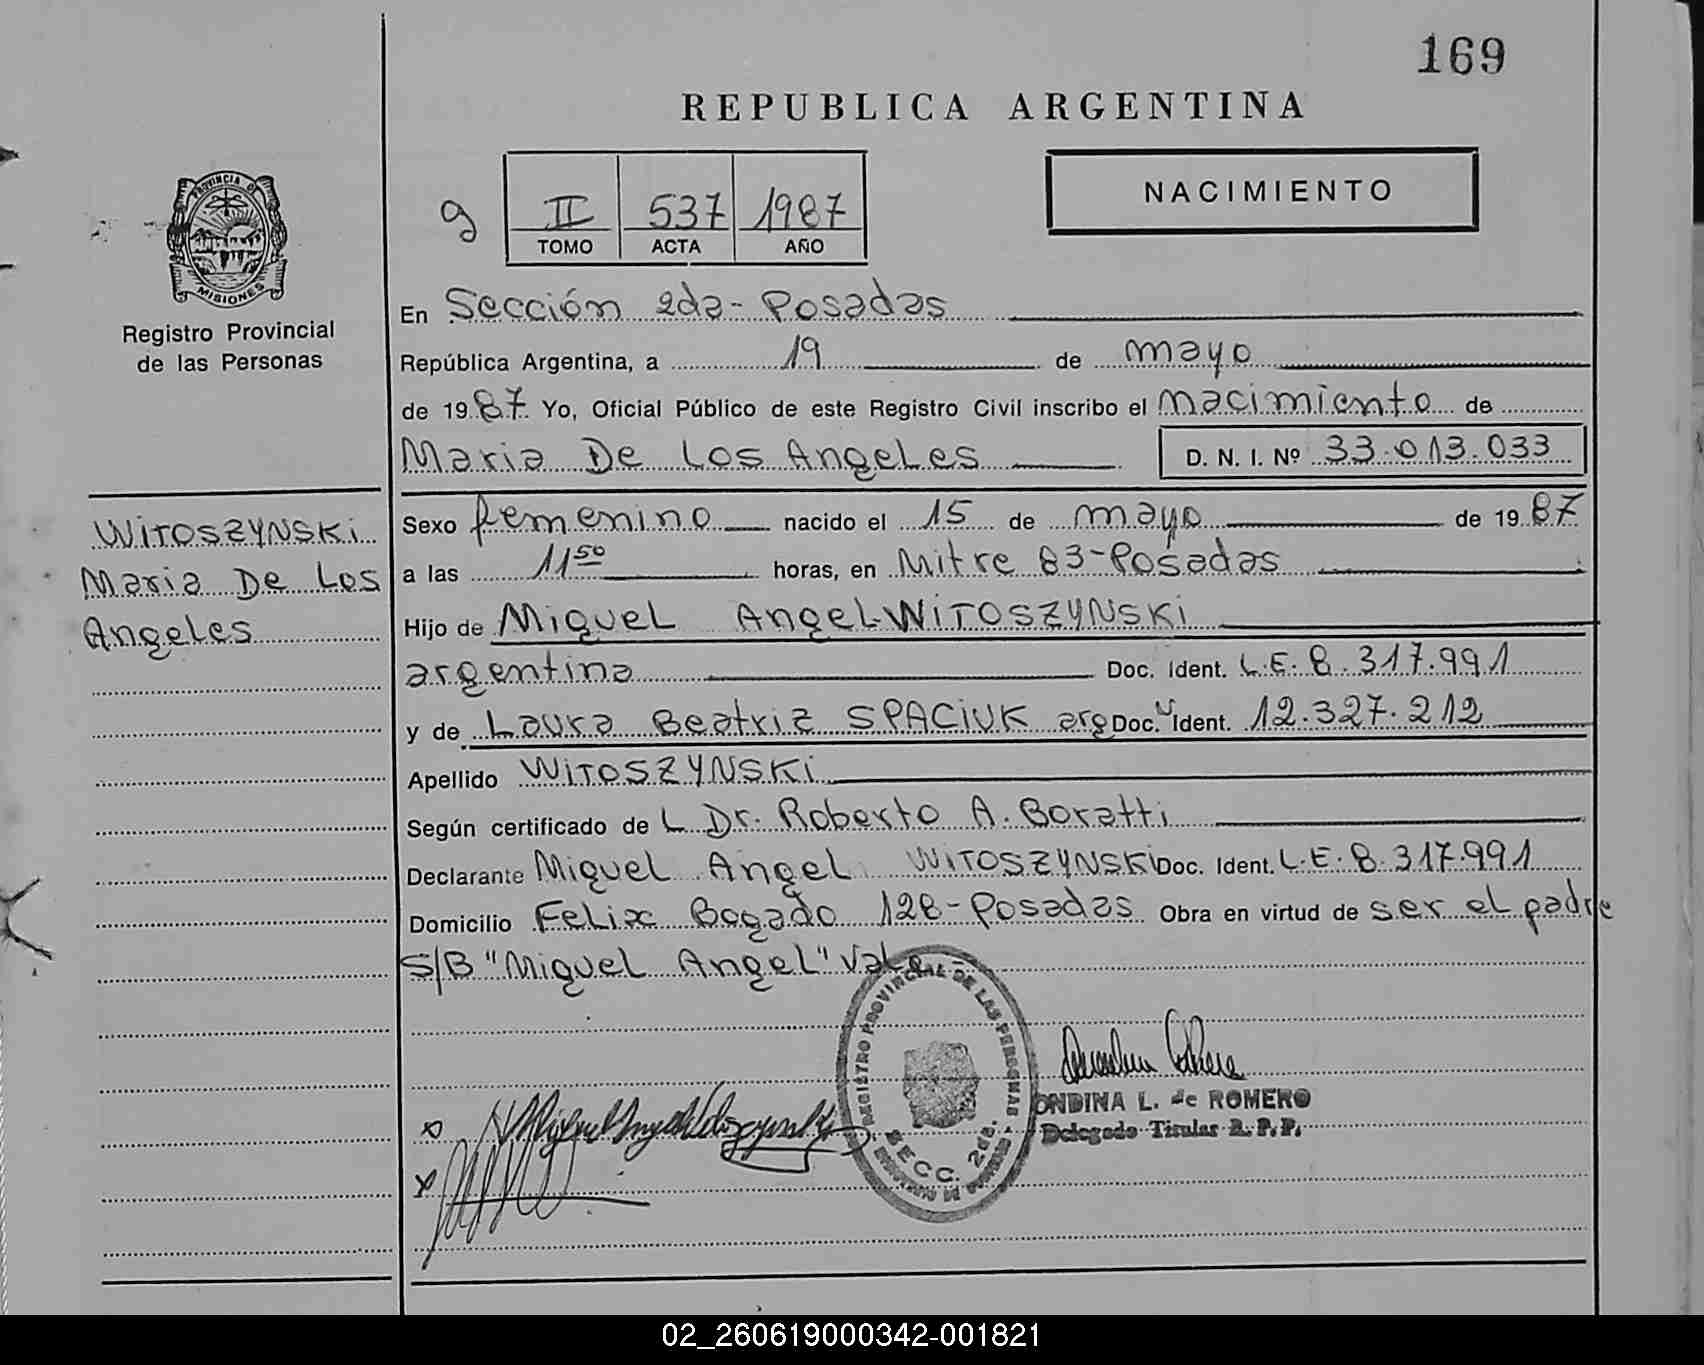 169
REPUBLICA ARGENTINA
g II 537 1987
TOMO ACTA AÑO
NACIMIENTO
PROVINCIA DE
MISIONES
Registro Provincial
de las Personas
En Sección 2da - Posadas
República Argentina, a 19 de mayo
de 1987 Yo, Oficial Público de este Registro Civil inscribo el nacimiento de
Maria De Los Angeles D. N. I. Nº 33.013.033
WITOSZYNSKI
Maria De Los
Angeles
Sexo femenino nacido el 15 de mayo de 1987
a las 11 50 horas, en Mitre 83 - Posadas
Hijo de Miguel Angel WITOSZYNSKI
argentina Doc. Ident. L.E. 8.317.991
y de Laura Beatriz SPACIUK arg Doc. Ident. 12.327.212
Apellido WITOSZYNSKI
Según certificado de L Dr. Roberto A. Boratti
Declarante Miguel Angel WITOSZYNSKI Doc. Ident. L.E. 8.317.991
Domicilio Felix Bogado 128 - Posadas Obra en virtud de ser el padre
S/B "Miguel Angel" Vale
REGISTRO PROVINCIAL DE LAS PERSONAS
SECC. 2da.
ONDINA L. de ROMERO
Delegado Titular R. P. P.
02_260619000342-001821